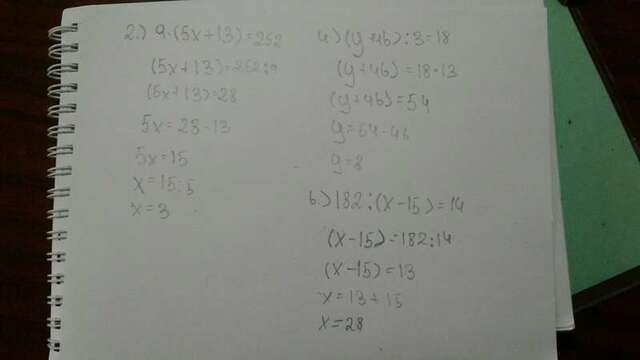 2.) 9·(5x+13)=252
(5x+13)=252:9
(5x+13)=28
5x=28-13
5x=15
x=15:5
x=3
4.) (y+46):3=18
(y+46)=18·13
(y+46)=54
y=54-46
y=8
6.) 182:(x-15)=14
(x-15)=182:14
(x-15)=13
x=13+15
x=28